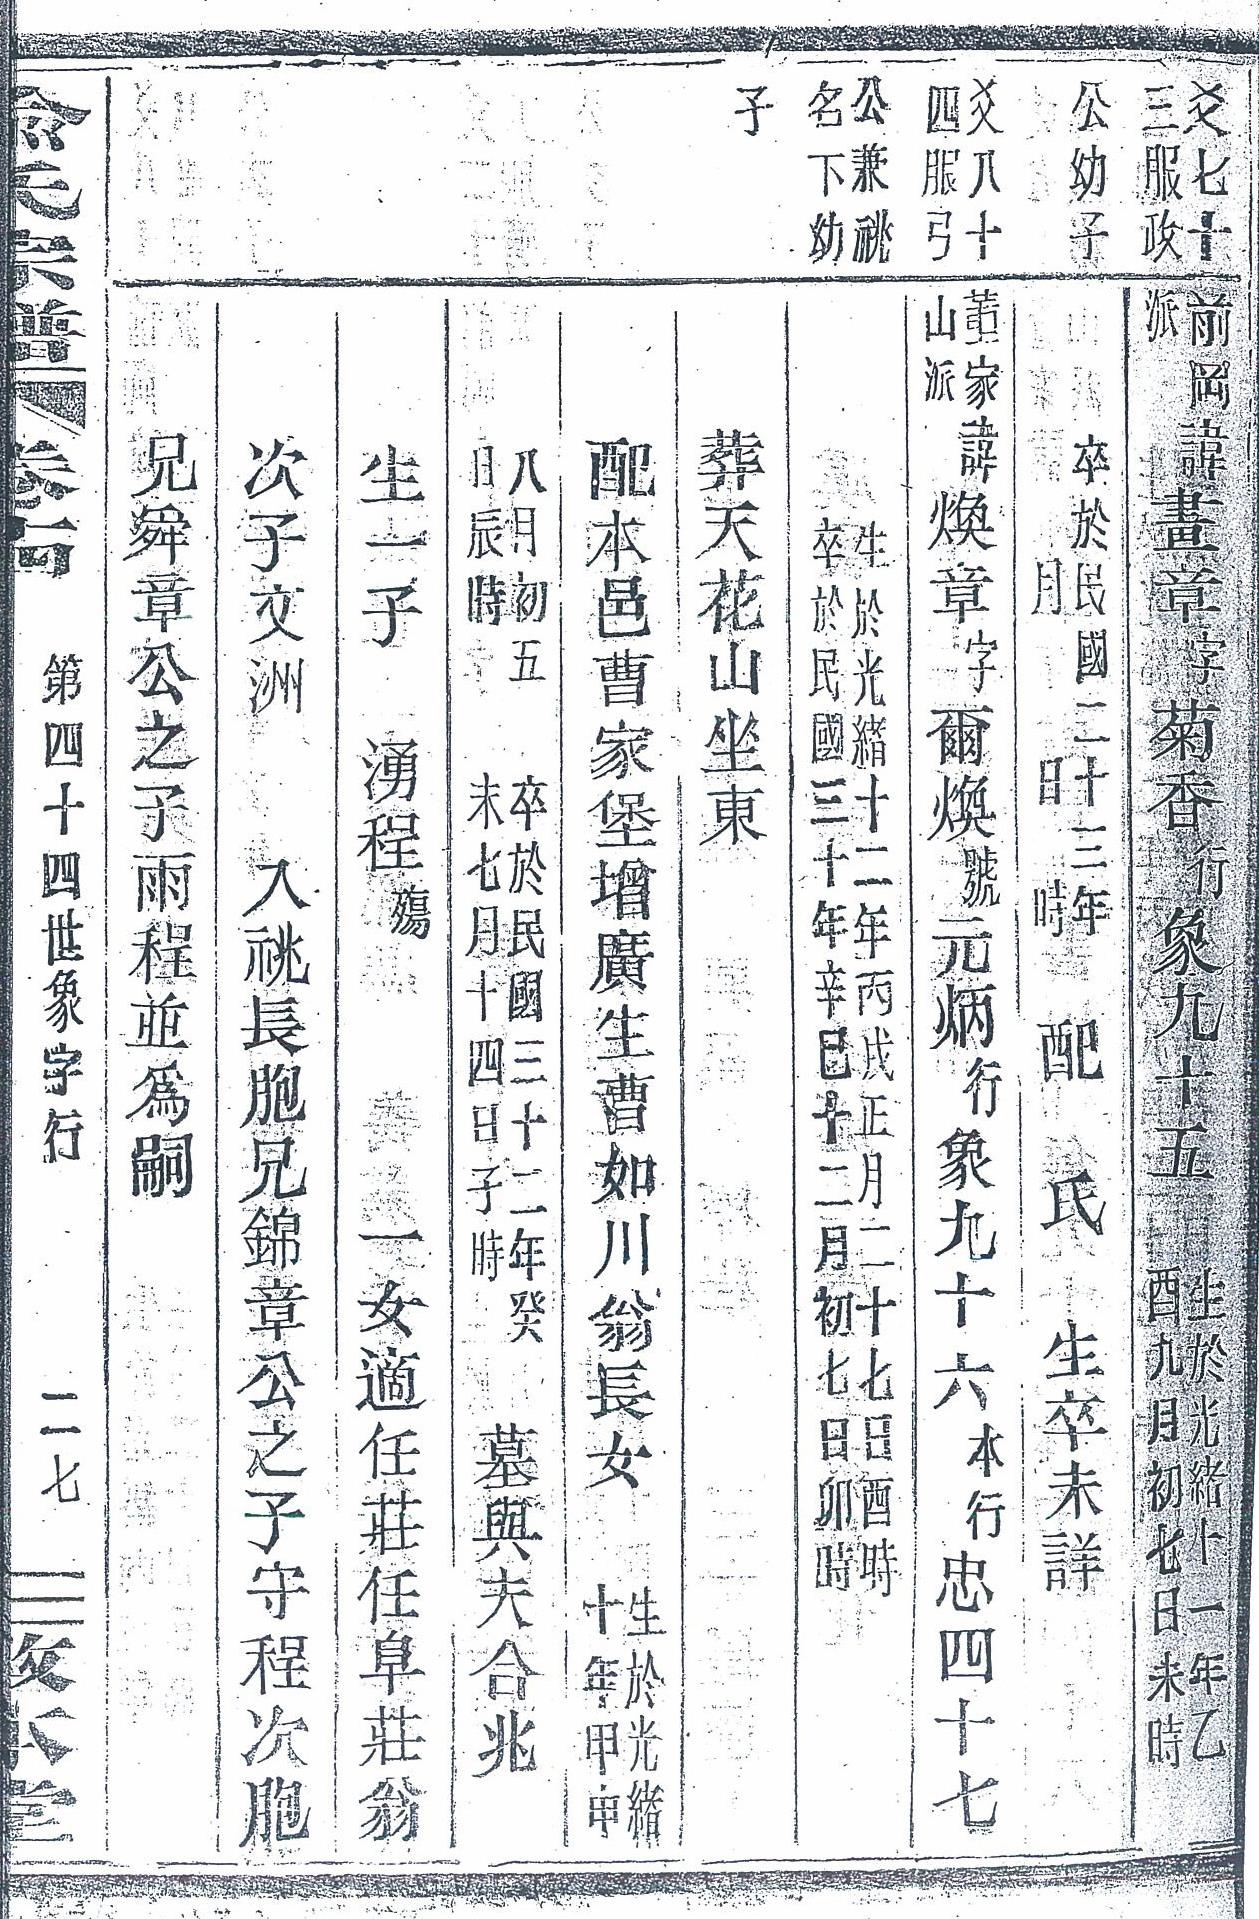 爻七十
三服政
公幼子
爻八十
四服弓
公兼祧
名下幼
子
前岡
派
諱畫章字菊香行象九十五
生於光緒十一年乙
酉九月初七日未時
卒於民國二十三年
月 日 時
配 氏 生卒未詳
董家
山派
諱煥章字爾煥號元炳行象九十六本行忠四十七
生於光緒十二年丙戌正月二十七日酉時
卒於民國三十年辛巳十二月初七日卯時
葬天花山坐東
配本邑曹家堡增廣生曹如川翁長女
生於光緒
十年甲申
八月初五
日辰時
卒於民國三十二年癸
未七月十四日子時
墓與夫合兆
生一子 湧程殤 一女適任莊任阜莊翁
次子文洲 入祧長胞兄錦章公之子守程次胞
兄舜章公之子雨程並爲嗣
俞氏宗譜 卷 第四十四世象字行 二七 堂